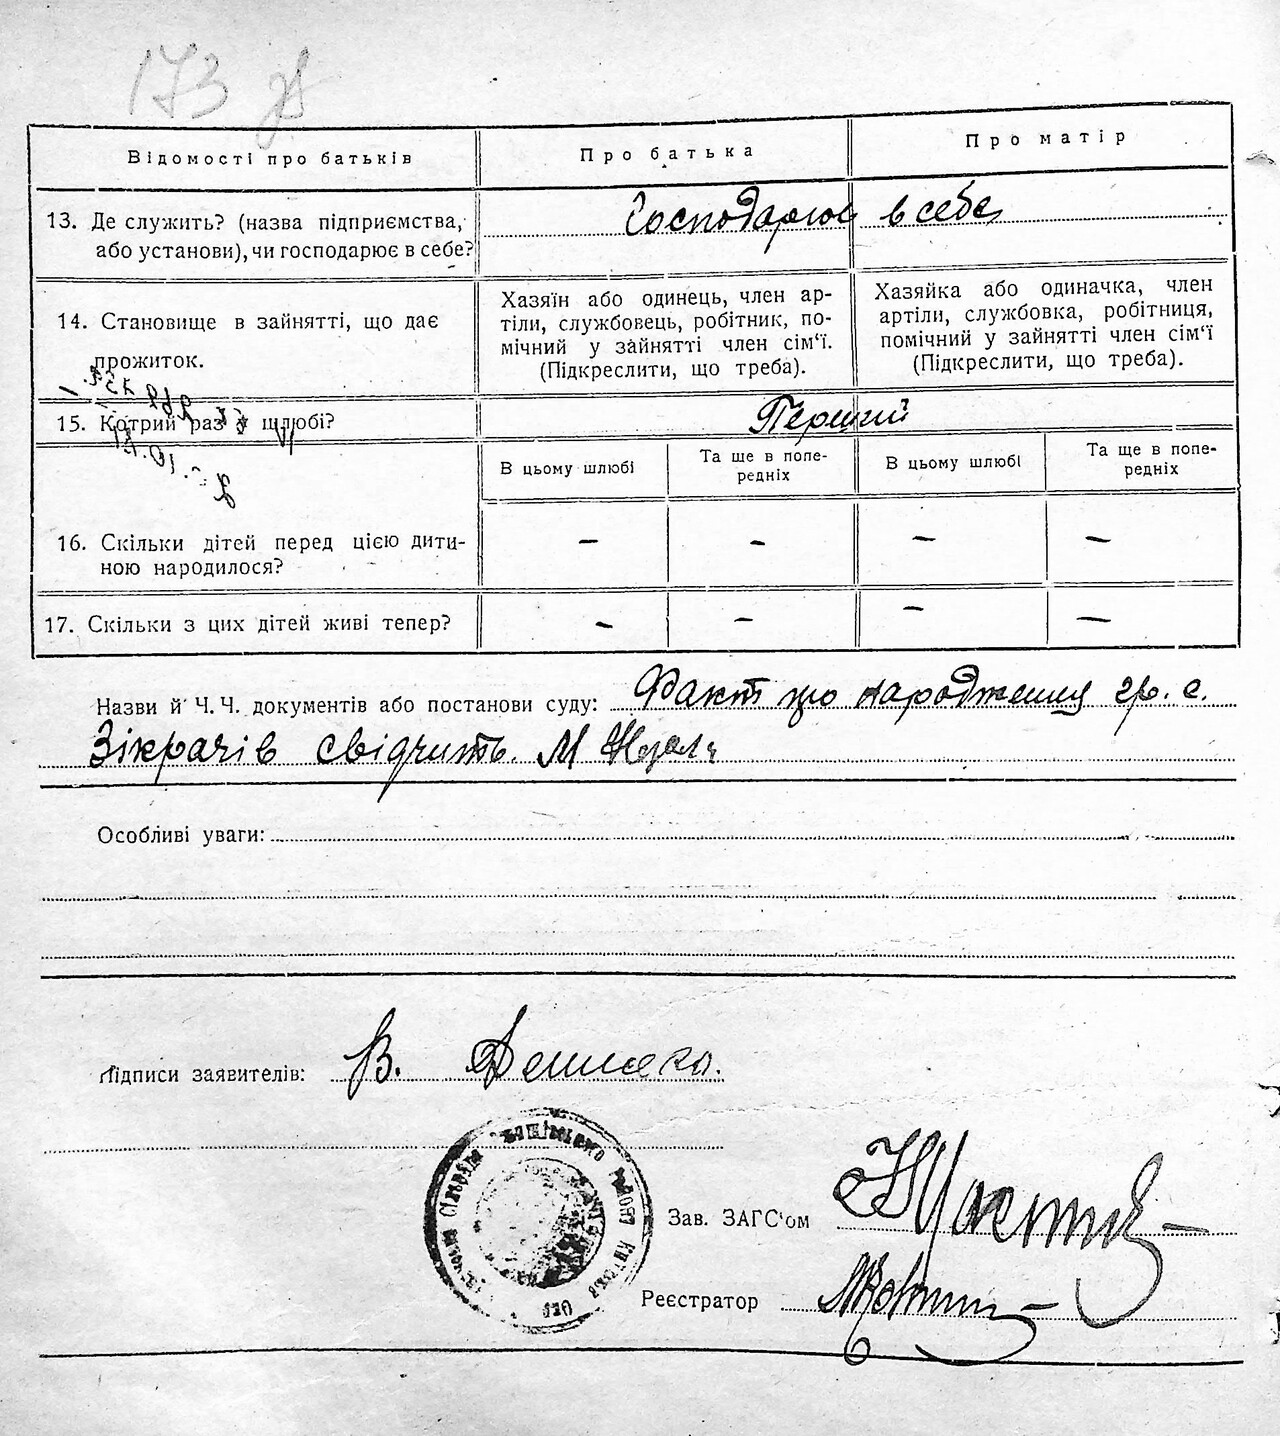 173
Відомості про батьків
Про батька
Про матір
13. Де служить? (назва підприємства,
або установи), чи господарює в себе?
Господарює в себе
14. Становище в зайнятті, що дає
прожиток.
Хазяїн або одинець, член ар-
тіли, службовець, робітник, по-
мічний у зайнятті член сім'ї.
(Підкреслити, що треба).
Хазяйка або одиначка, член
артіли, службовка, робітниця,
помічний у зайнятті член сім'ї
(Підкреслити, що треба).
15. Котрий раз у шлюбі?
Перший
В цьому шлюбі
Та ще в попе-
редніх
В цьому шлюбі
Та ще в попе-
редніх
16. Скільки дітей перед цією дити-
ною народилося?
– – – –
17. Скільки з цих дітей живі тепер?
– – – –
Назви й Ч. Ч. документів або постанови суду: Факт про народження гр. с.
Зікрачів свідчить. М
Особливі уваги:
Підписи заявителів: В.
Зав. ЗАГС'ом
Реєстратор